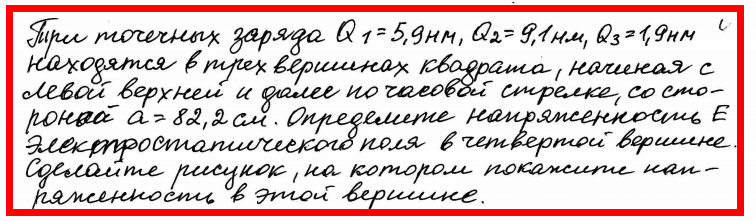 Три точечных заряда Q1=5,9нм, Q2=9,1нм, Q3=1,9нм
находятся в трех вершинах квадрата, начиная с
левой верхней и далее по часовой стрелке, со сто-
роной а=82,2см. Определите напряженность Е
электростатического поля в четвертой вершине.
Сделайте рисунок, на котором покажите нап-
ряженность в этой вершине.